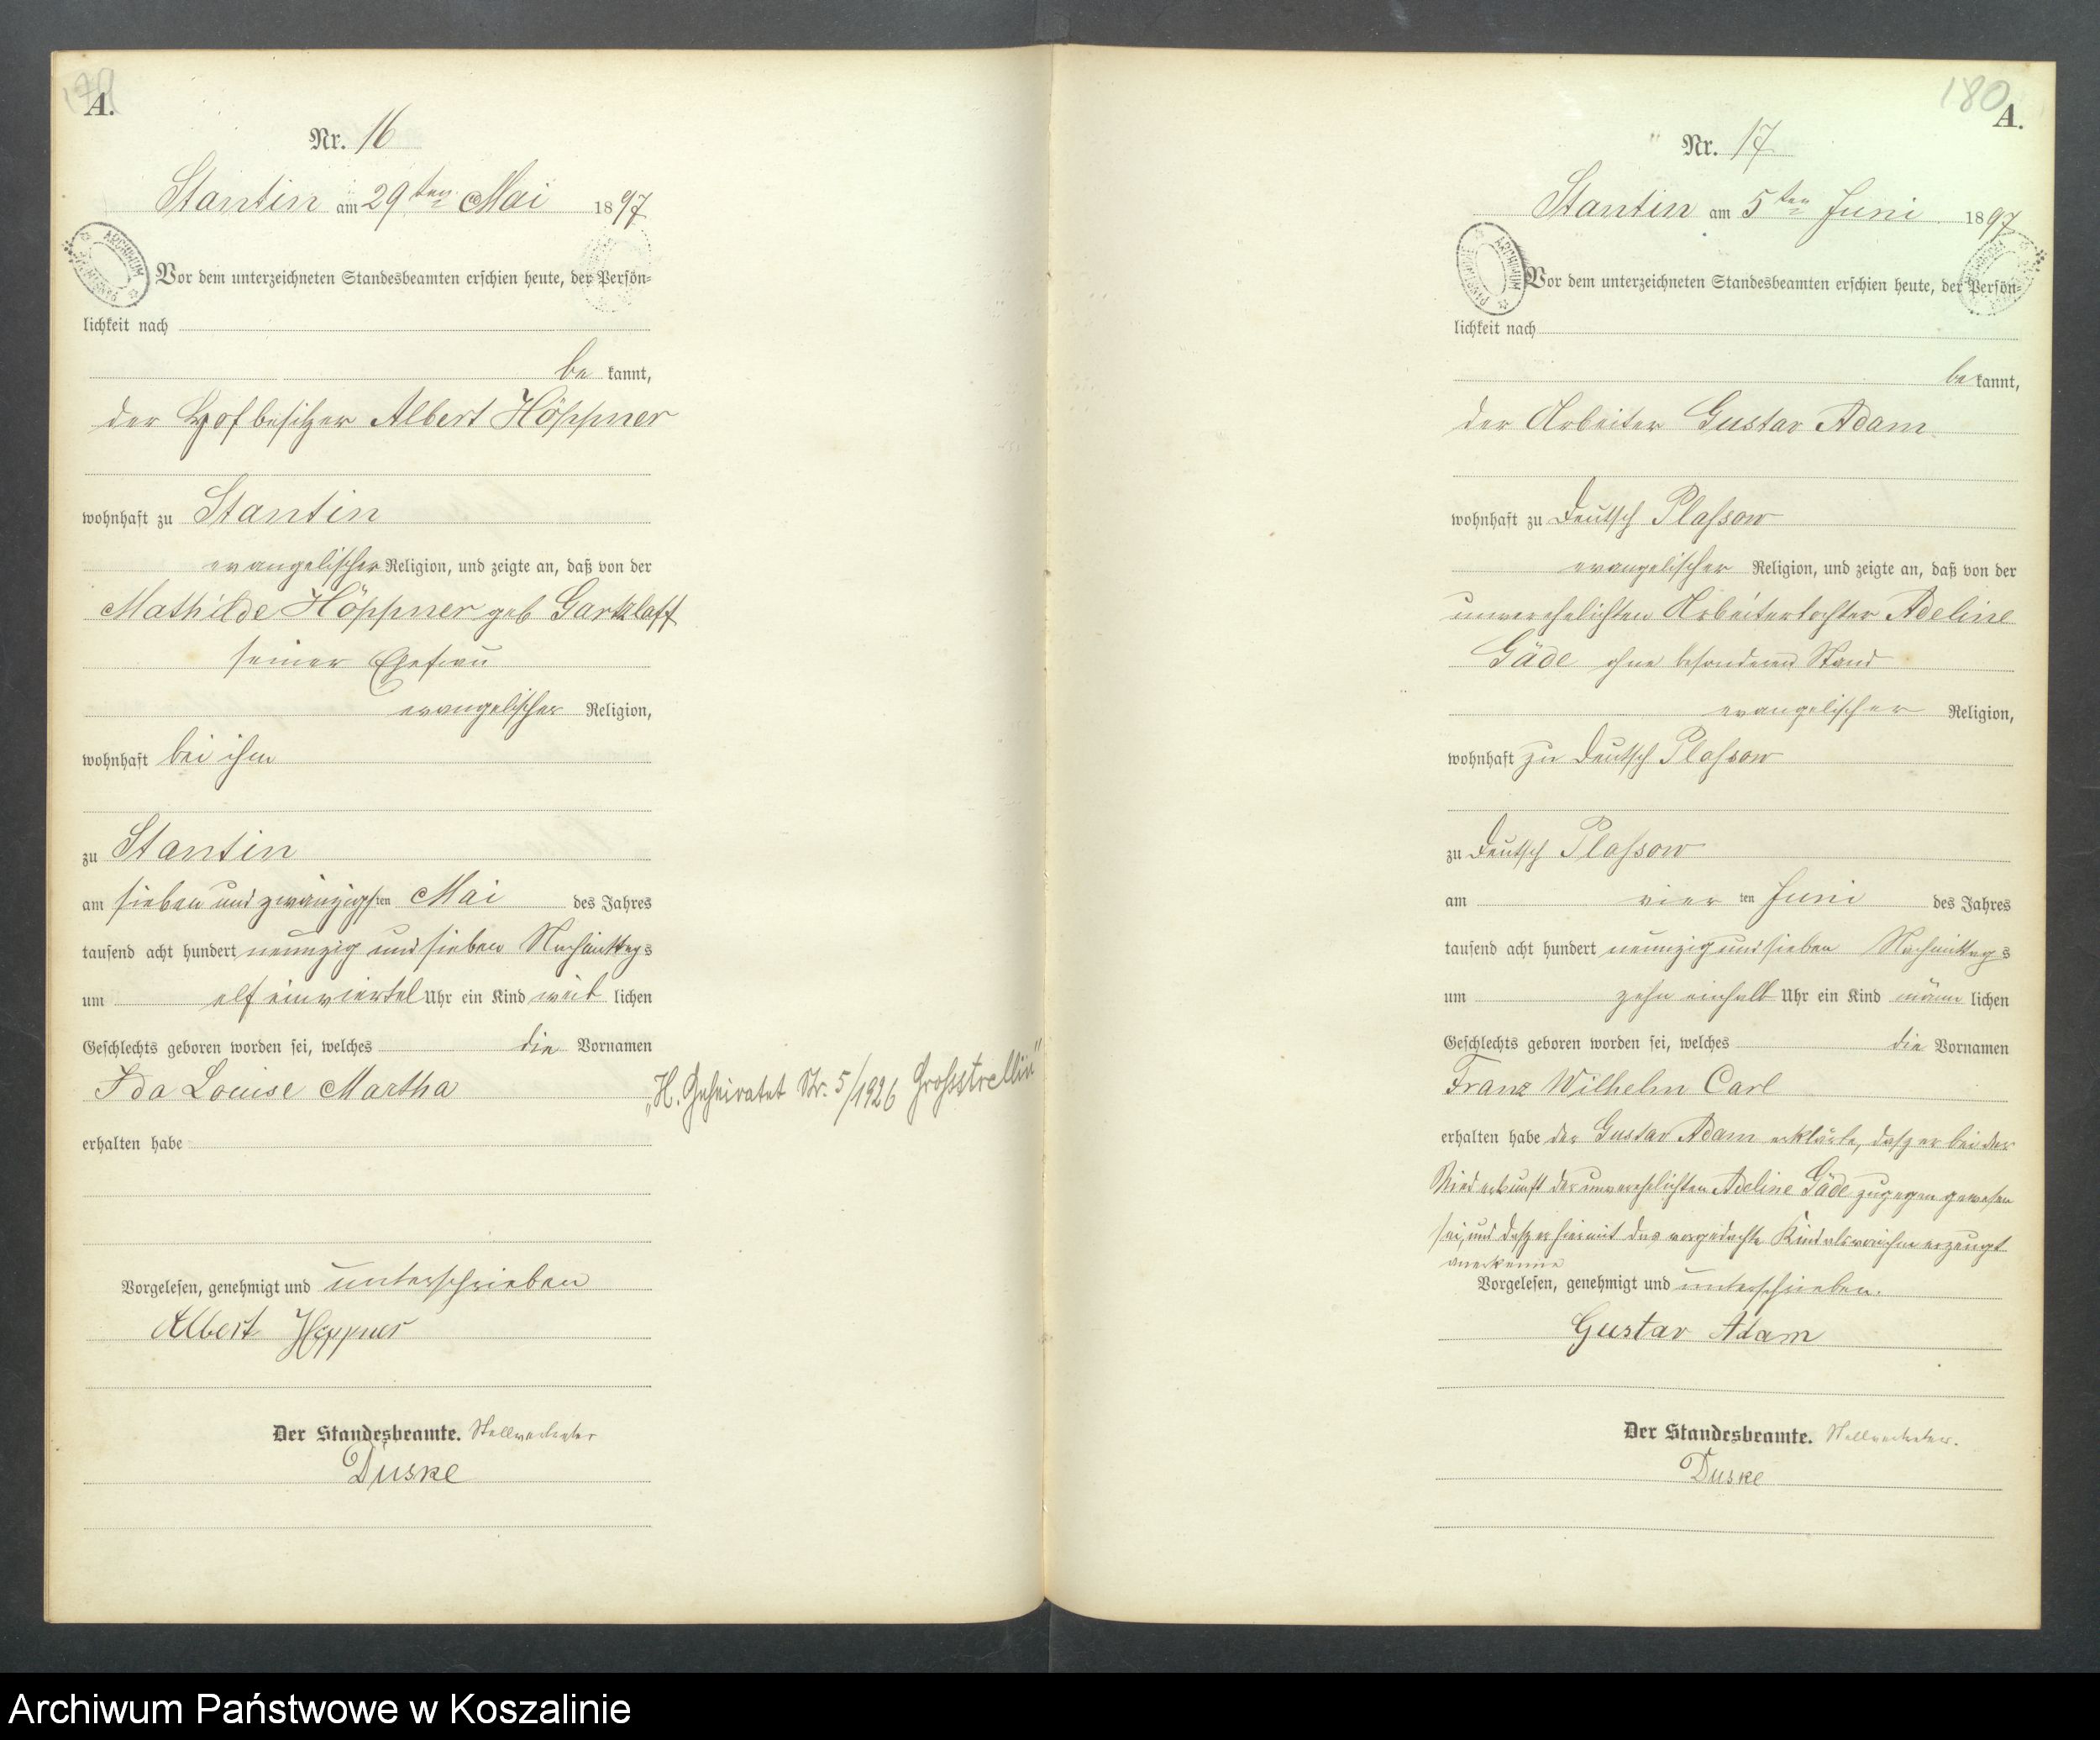 A.
Nr. 16
Stantin am 29ten Mai 1897
Vor dem unterzeichneten Standesbeamten erschien heute, der Persön-
lichkeit nach
be kannt,
der Hofbesitzer Albert Höppner
wohnhaft zu Stantin
evangelischer Religion, und zeigte an, daß von der
Mathilde Höppner geb Gartzlaff
seiner Ehefrau
evangelischer Religion,
wohnhaft bei ihm
zu Stantin
am sieben und zwanzigsten Mai des Jahres
tausend acht hundert neunzig und sieben Nachmittags
um elf einviertel Uhr ein Kind weib lichen
Geschlechts geboren worden sei, welches die Vornamen
Ida Louise Martha
„H. Geheiratet Nr. 5/1926 Grossstrellin"
erhalten habe
Vorgelesen, genehmigt und unterschrieben
Albert Höppner
Der Standesbeamte. Stellvertreter
Duske
180
A.
Nr. 17
Stantin am 5ten Juni 1897
Vor dem unterzeichneten Standesbeamten erschien heute, der Persön-
lichkeit nach
be kannt,
der Arbeiter Gustav Adam
wohnhaft zu Deutsch Plassow
evangelischer Religion, und zeigte an, daß von der
unverehelichten Arbeitertochter Adeline
Gäde ohne besonderen Stand
evangelischer Religion,
wohnhaft zu Deutsch Plassow
zu Deutsch Plassow
am vier ten Juni des Jahres
tausend acht hundert neunzig und sieben Nachmittags
um zehn einhalb Uhr ein Kind männ lichen
Geschlechts geboren worden sei, welches die Vornamen
Franz Wilhelm Carl
erhalten habe der Gustav Adam erklärte, daß er bei der
Niederkunft der unverehelichten Adeline Gäde zugegen gewesen
sei, und daß er hiermit das vorgedachte Kind als von ihm erzeugt
anerkenne
Vorgelesen, genehmigt und unterschrieben.
Gustav Adam
Der Standesbeamte. Stellvertreter.
Duske
Archiwum Państwowe w Koszalinie